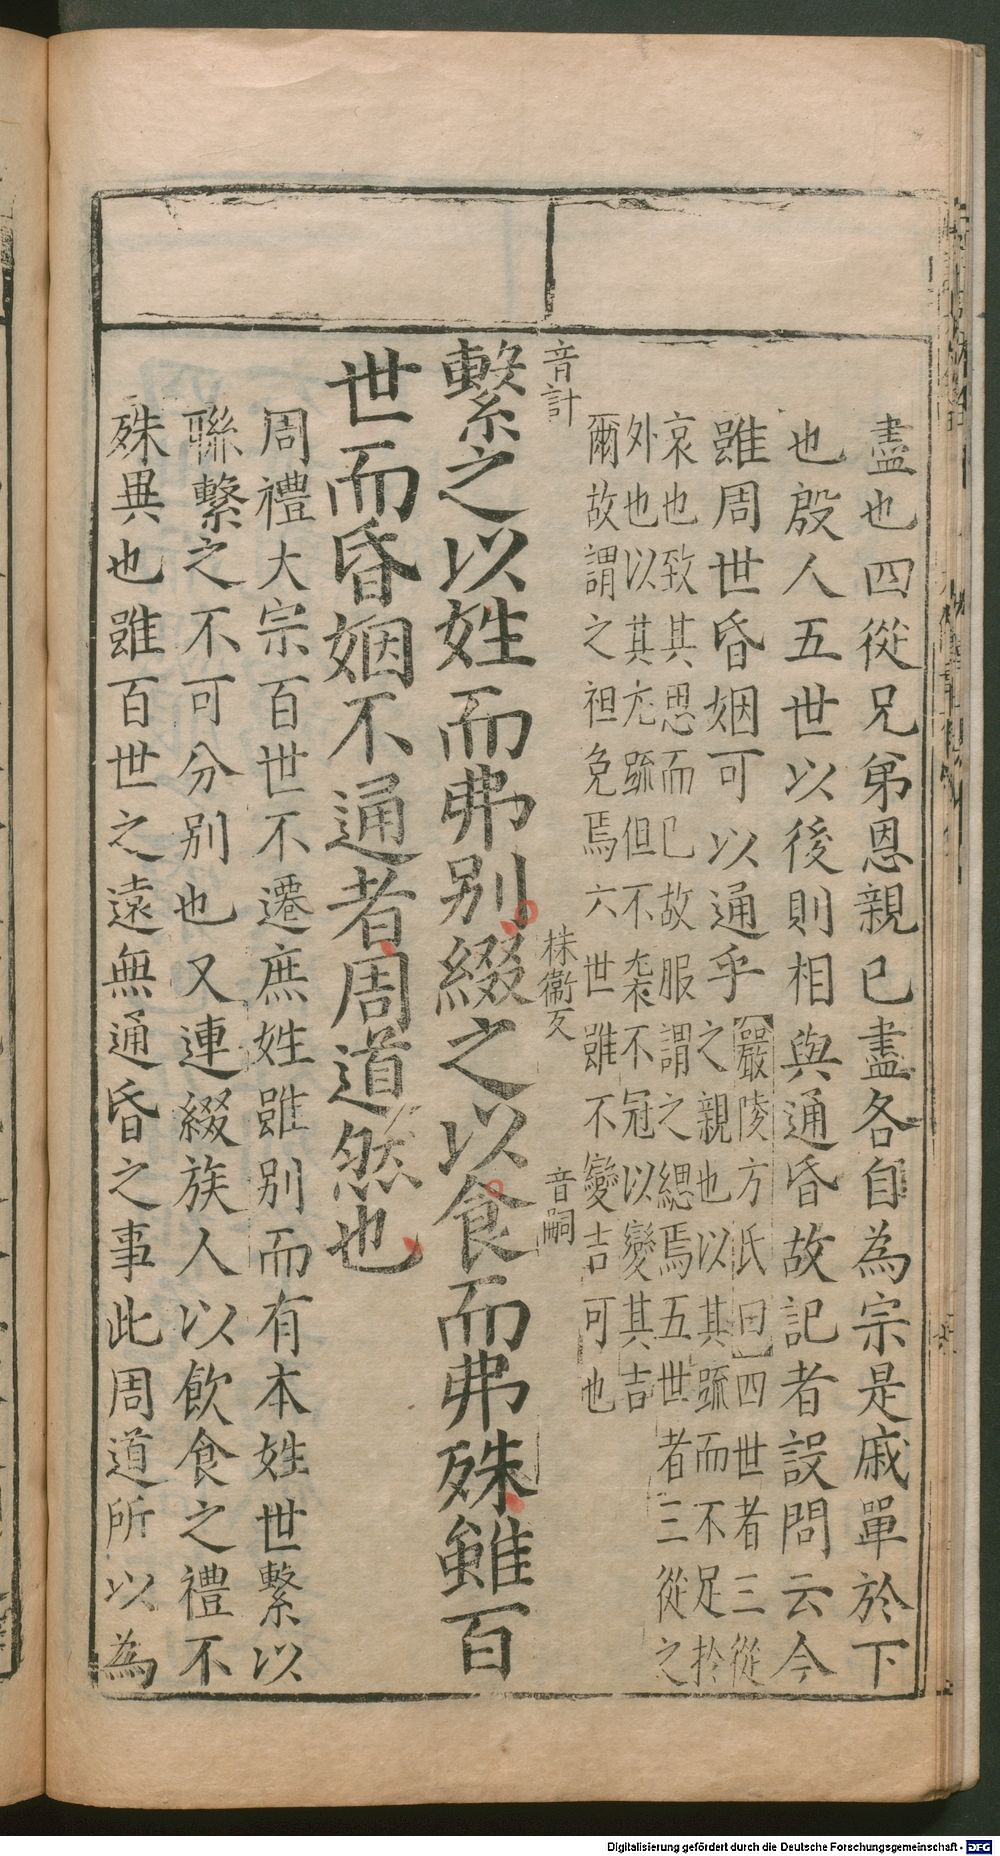 盡也四從兄弟恩親已盡各自為宗是戚單於下
也殷人五世以後則相與通昏故記者設問云今
雖周世昏姻可以通乎
嚴陵方氏曰四世者三從
之親也以其䟽而不足於
哀也致其思而已故服謂之緦焉五世者三從之
外也以其尤䟽但不袭不冠以變其吉
爾故謂之袒免焉六世雖不變吉可也
音計
株衞反
音嗣
繫之以姓而弗别綴之以食而弗殊雖百
世而昏姻不通者周道然也
周禮大宗百世不遷庶姓雖别而有本姓世繫以
聯繫之不可分别也又連綴族人以飲食之禮不
殊異也雖百世之遠無通昏之事此周道所以為
Digitalisierung gefördert durch die Deutsche Forschungsgemeinschaft - DFG